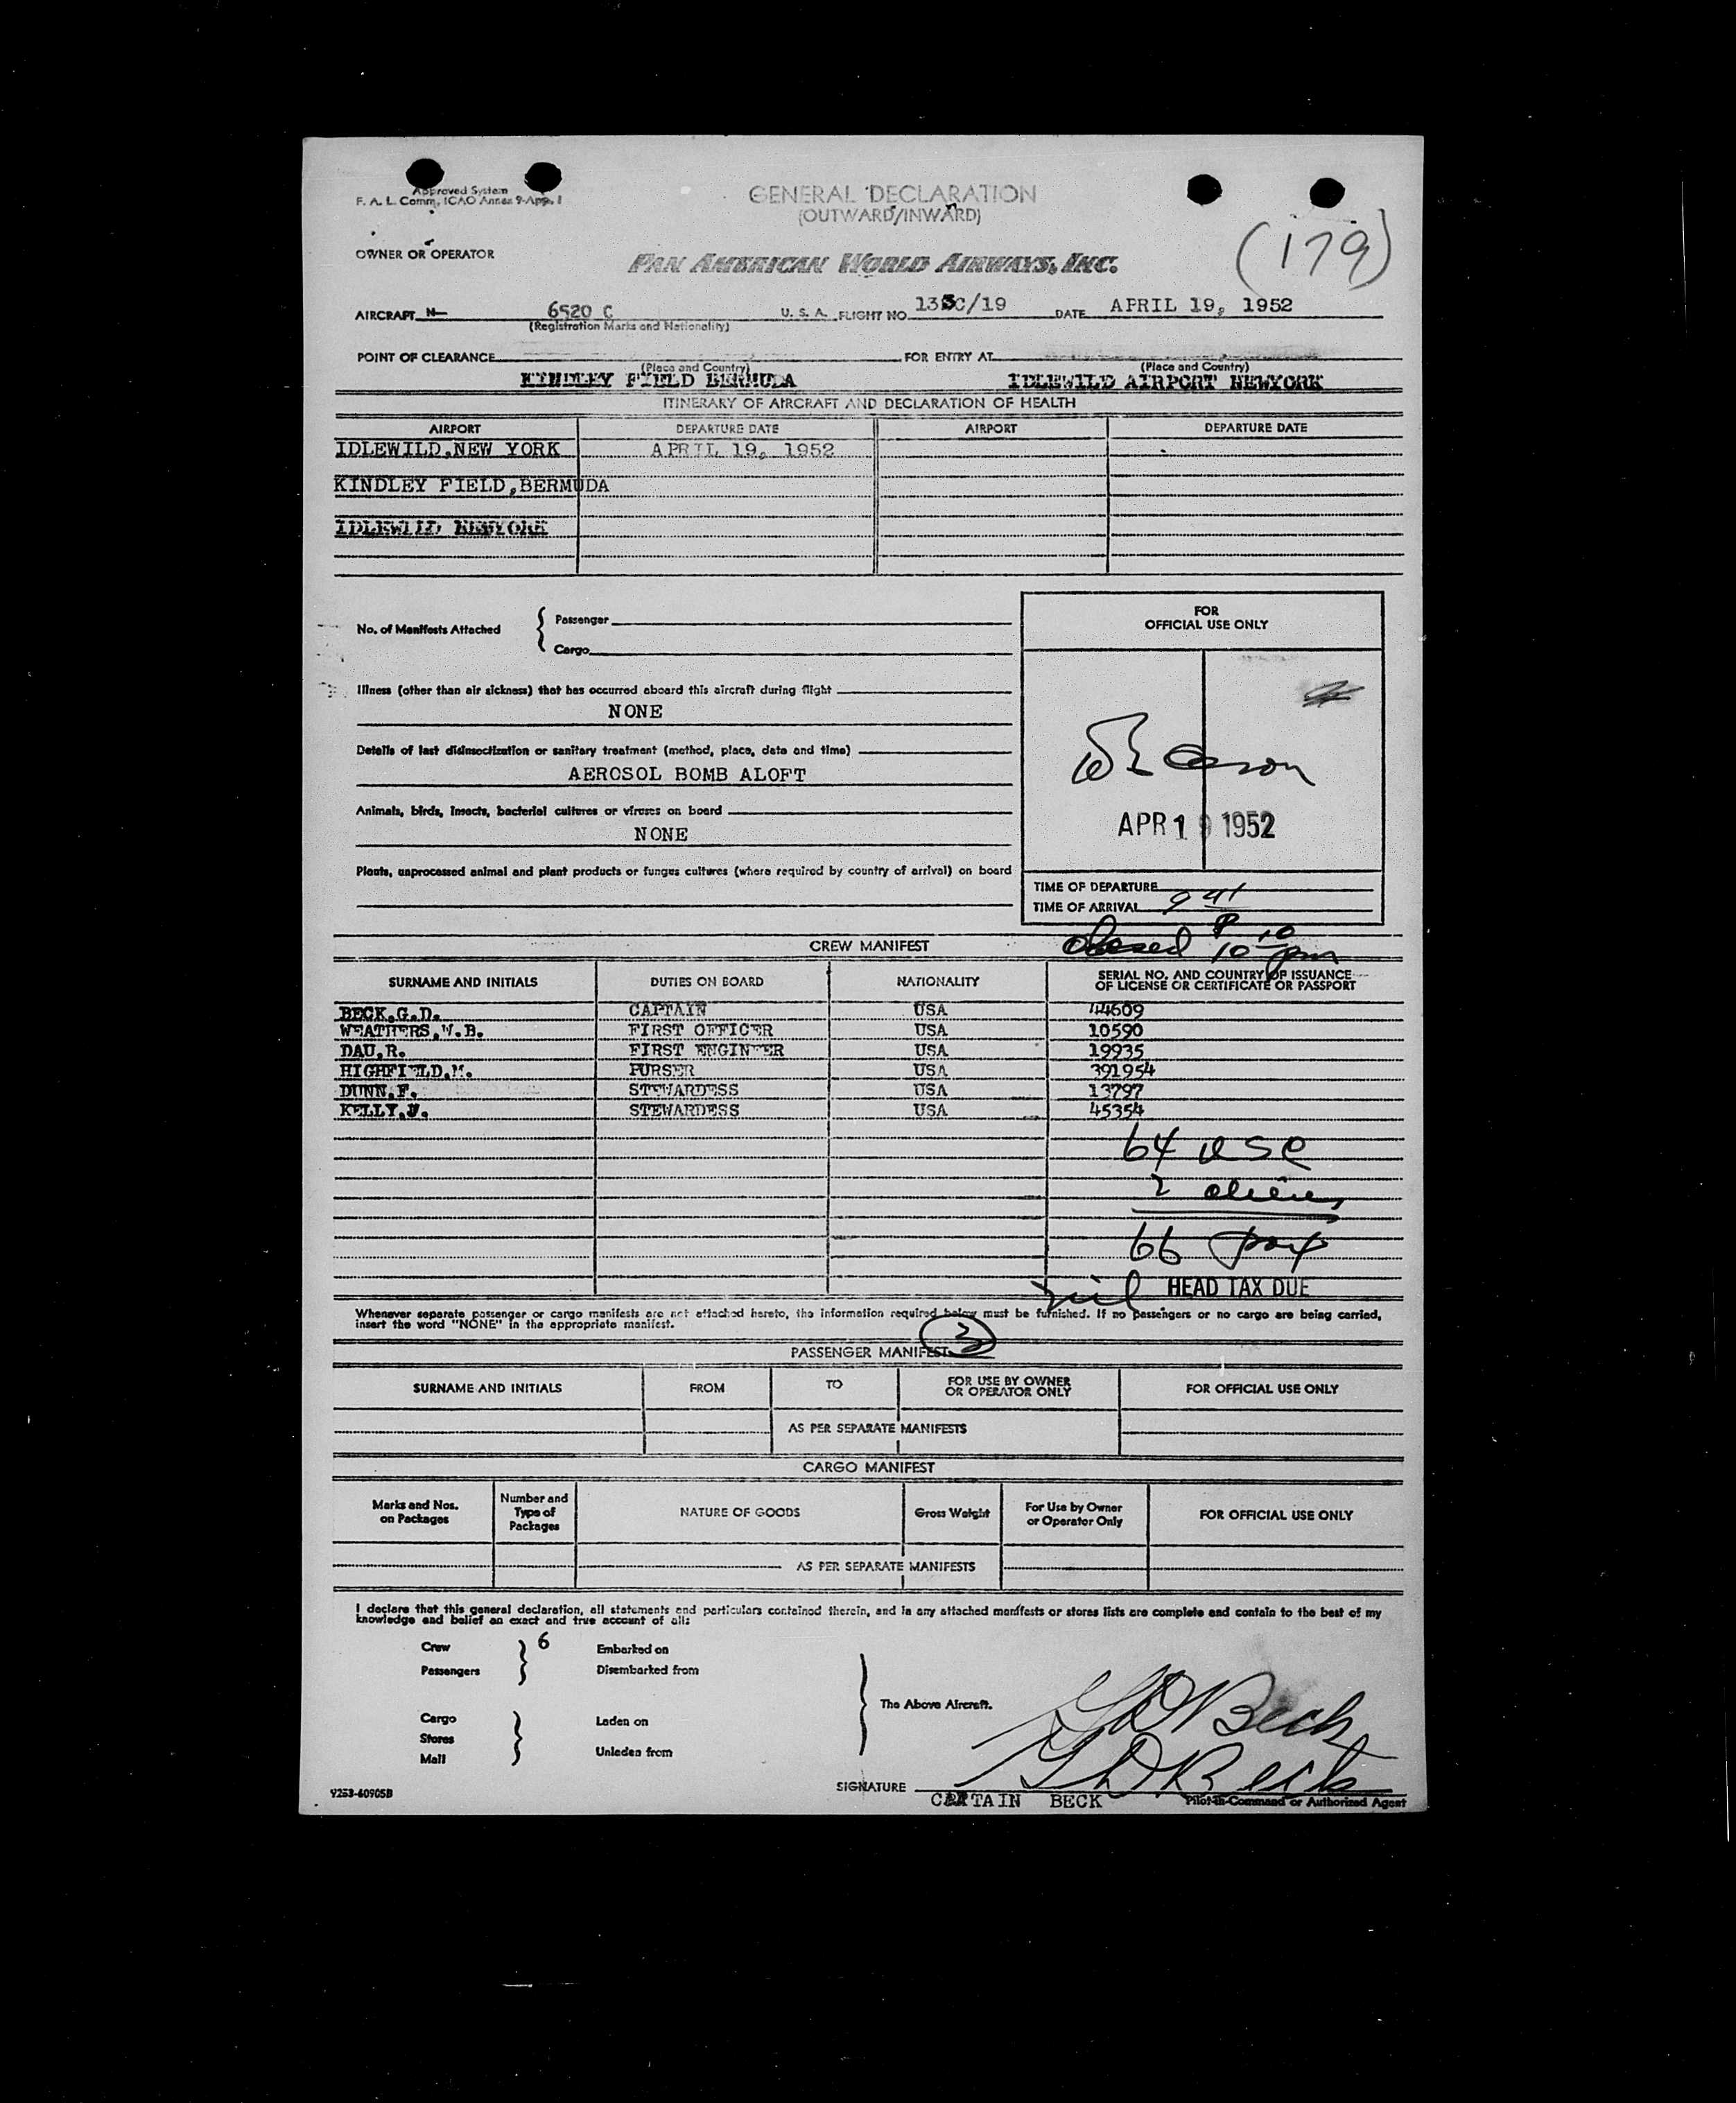 Approved System
F. A. L. Comm, ICAO Annex 9-App. 1
GENERAL DECLARATION
(OUTWARD/INWARD)
(179)
OWNER OR OPERATOR
PAN AMERICAN WORLD AIRWAYS, INC.
AIRCRAFT N- 6520 C U. S. A. FLIGHT NO. 133C/19 DATE APRIL 19, 1952
(Registration Marks and Nationality)
POINT OF CLEARANCE FOR ENTRY AT
(Place and Country) (Place and Country)
KINDLEY FIELD BERMUDA IDLEWILD AIRPORT NEWYORK
ITINERARY OF AIRCRAFT AND DECLARATION OF HEALTH
AIRPORT DEPARTURE DATE AIRPORT DEPARTURE DATE
IDLEWILD,NEW YORK APRIL 19, 1952
KINDLEY FIELD,BERMUDA
IDLEWILD NEWYORK
FOR
OFFICIAL USE ONLY
No. of Manifests Attached { Passenger
Cargo
Illness (other than air sickness) that has occurred aboard this aircraft during flight
NONE
Details of last disinsectization or sanitary treatment (method, place, date and time)
AEROSOL BOMB ALOFT
Animals, birds, insects, bacterial cultures or viruses on board
NONE
APR 19 1952
Plants, unprocessed animal and plant products or fungus cultures (where required by country of arrival) on board
TIME OF DEPARTURE
TIME OF ARRIVAL 9 41
P
CREW MANIFEST
10 10 pm
SURNAME AND INITIALS DUTIES ON BOARD NATIONALITY SERIAL NO. AND COUNTRY OF ISSUANCE
OF LICENSE OR CERTIFICATE OR PASSPORT
BECK,G.D. CAPTAIN USA 44609
WEATHERS,W.B. FIRST OFFICER USA 10590
DAU,R. FIRST ENGINEER USA 19935
HIGHFIELD,M. PURSER USA 391954
DUNN,F. STEWARDESS USA 13797
KELLY, STEWARDESS USA 45354
64 USC
2 aliens
66 pax
nil HEAD TAX DUE
Whenever separate passenger or cargo manifests are not attached hereto, the information required below must be furnished. If no passengers or no cargo are being carried,
insert the word "NONE" in the appropriate manifest.
PASSENGER MANIFEST
SURNAME AND INITIALS FROM TO FOR USE BY OWNER
OR OPERATOR ONLY FOR OFFICIAL USE ONLY
AS PER SEPARATE MANIFESTS
CARGO MANIFEST
Marks and Nos.
on Packages Number and
Type of
Packages NATURE OF GOODS Gross Weight For Use by Owner
or Operator Only FOR OFFICIAL USE ONLY
AS PER SEPARATE MANIFESTS
I declare that this general declaration, all statements and particulars contained therein, and in any attached manifests or stores lists are complete and contain to the best of my
knowledge and belief an exact and true account of all:
Crew 6 Embarked on
Passengers Disembarked from
The Above Aircraft.
Cargo Laden on
Stores
Mail Unladen from
G D Beck
G D Beck
SIGNATURE
CAPTAIN BECK Pilot-in-Command or Authorized Agent
9253-60905B